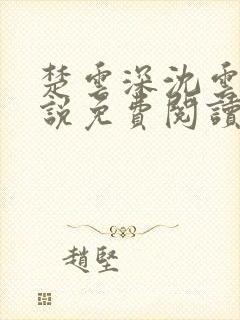 楚雲深沈雲
說免費閱讀
趙堅